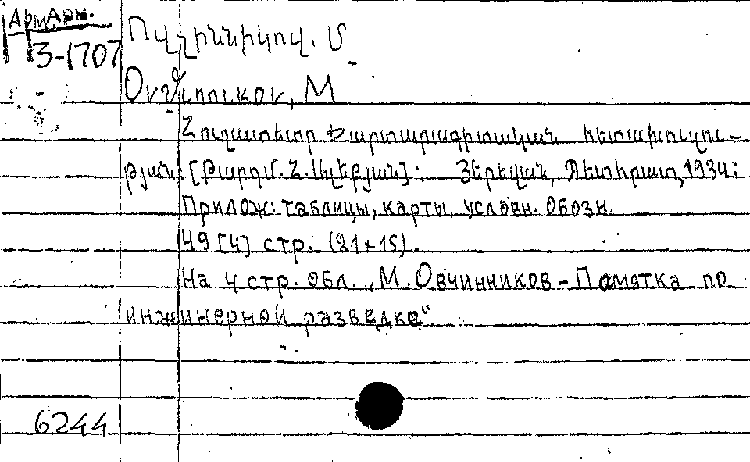 АрмАрм.
3-1707
Օվչիննիկով. Մ
Овчинников, М
Հուշատետր ճարտարագիտական հետախուզու-
թյան [Թարգմ. Հ. Ալեքյան]: Յերևան, Պետհրատ, 1934:
Прилож: таблицы, карты, условн. обозн.
49 [4] стр. (21×15).
На 4 стр. обл. „М. Овчинников – Памятка по
инженерной разведке“
6244